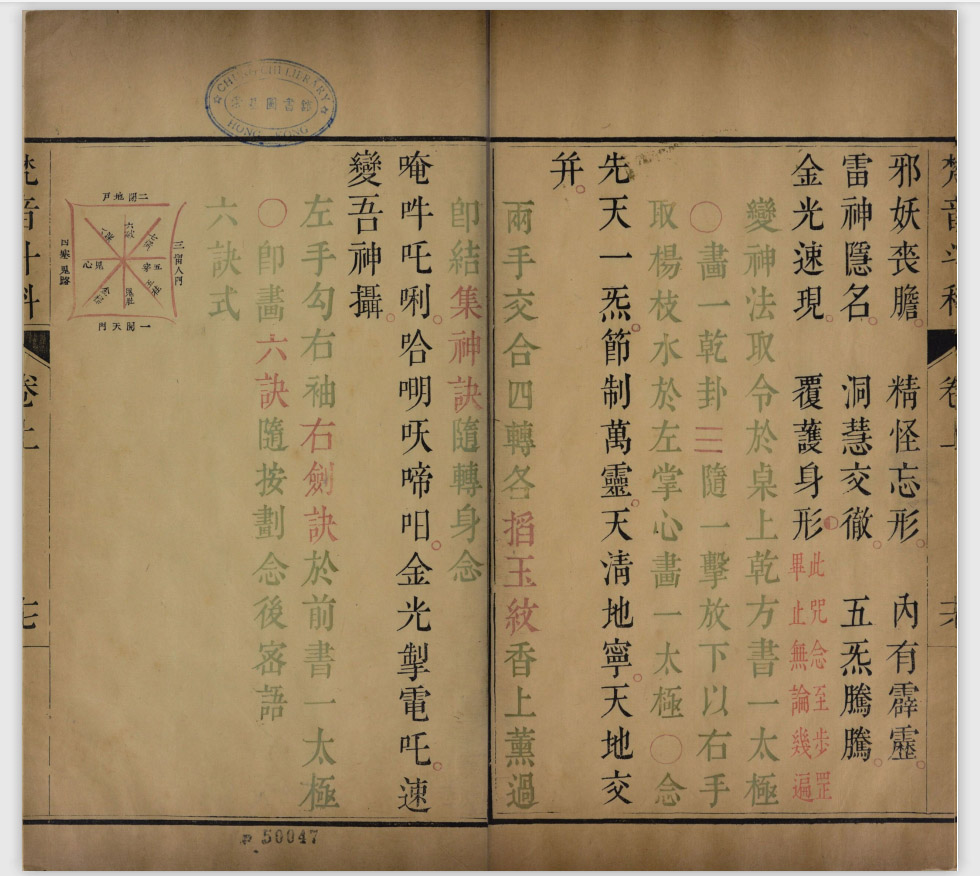 邪妖喪膽。精怪忘形。內有霹靂。
雷神隱名。洞慧交徹。五炁騰騰。
金光速現。覆護身形
此咒念至步罡
畢止無論幾遍
變神法取令於桌上乾方書一太極
〇畵一乾卦☰隨一擊放下以右手
取楊枝水於左掌心畵一太極〇念
先天一炁。節制萬靈。天清地寧。天地交
幷。
兩手交合四轉各搯玉紋香上薰過
卽結集神訣隨轉身念
唵吽吒唎。哈𠵇㕭啼呬。金光掣電吒。速
變吾神攝。
左手勾右袖右劍訣於前書一太極
〇卽畵六訣隨按劃念後宻語
六訣式
二閉地戶
三留人門
四塞鬼路
一開天門
鬼心
梵音斗科
卷上
七
CHUNG CHI LIBRARY
崇基圖書館
HONG KONG
50047